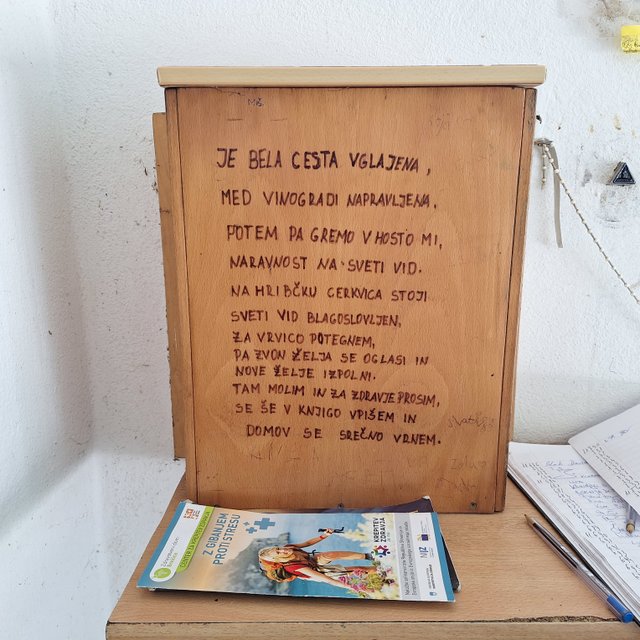 JE BELA CESTA VGLAJENA,
MED VINOGRADI NAPRAVLJENA.
POTEM PA GREMO V HOSTO MI,
NARAVNOST NA SVETI VID.
NA HRIBČKU CERKVICA STOJI
SVETI VID BLAGOSLOVLJEN,
ZA VRVICO POTEGNEM,
PA ZVON ŽELJA SE OGLASI IN
NOVE ŽELJE IZPOLNI.
TAM MOLIM IN ZA ZDRAVJE PROSIM,
SE ŠE V KNJIGO VPIŠEM IN
DOMOV SE SREČNO VRNEM.
Z GIBANJEM
PROTI STRESU
KREPITEV
ZDRAVJA
NIJZ